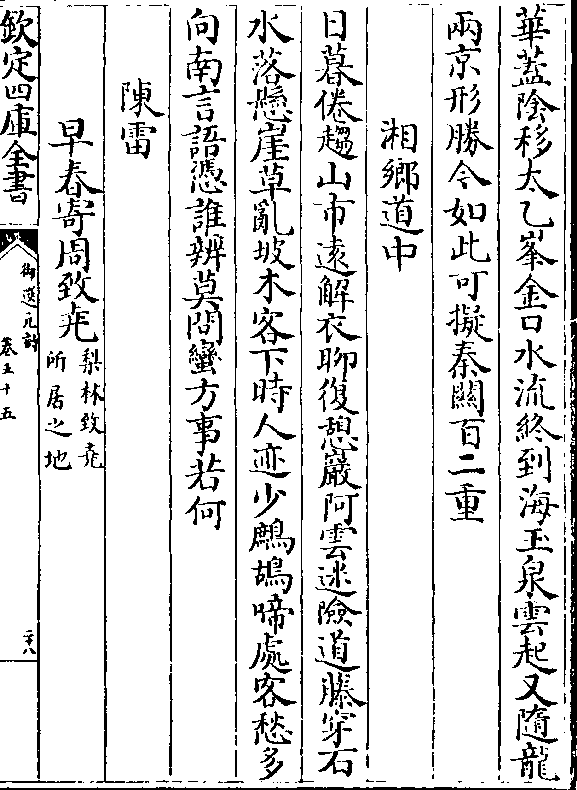 華蓋陰移太乙峯金口水流終到海玉泉雲起又隨龍
兩京形勝今如此可擬秦關百二重
湘鄉道中
日暮倦趨山市遠解衣聊復憩巖阿雲迷險道藤穿石
水落懸崖草亂坡木客下時人迹少鷓鴣啼處客愁多
向南言語憑誰辨莫問蠻方事若何
陳雷
早春寄周致堯
梨林致堯
所居之地
欽定四庫全書
御選元詩
卷五十五
二十八